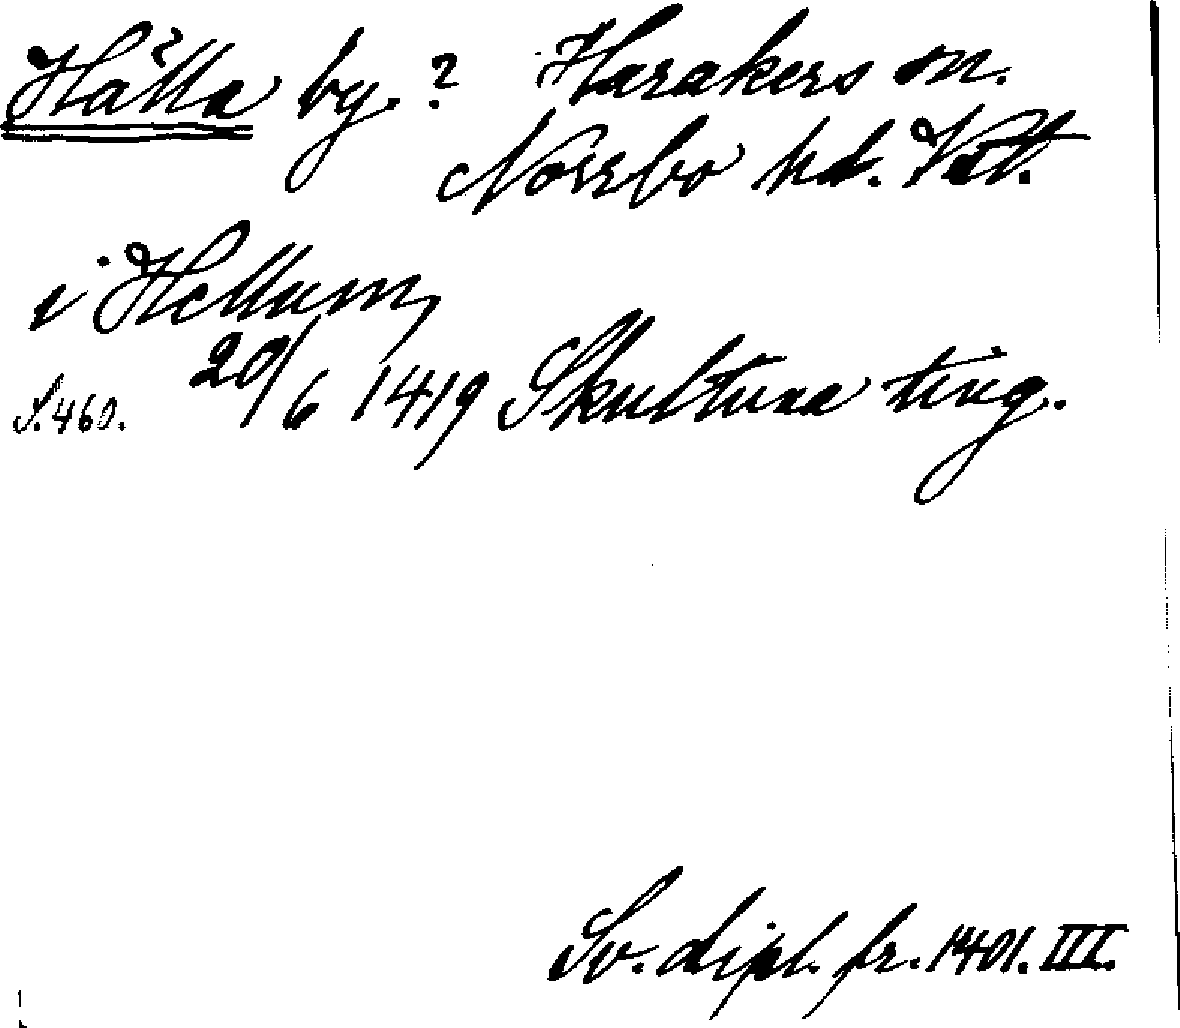 Hälla by.? Harakers sn.
Norrbo hd. Vstl.
i Hellum,
S. 460. 20/6 1419 Skultuna ting.
Sv. dipl. fr. 1401. III.